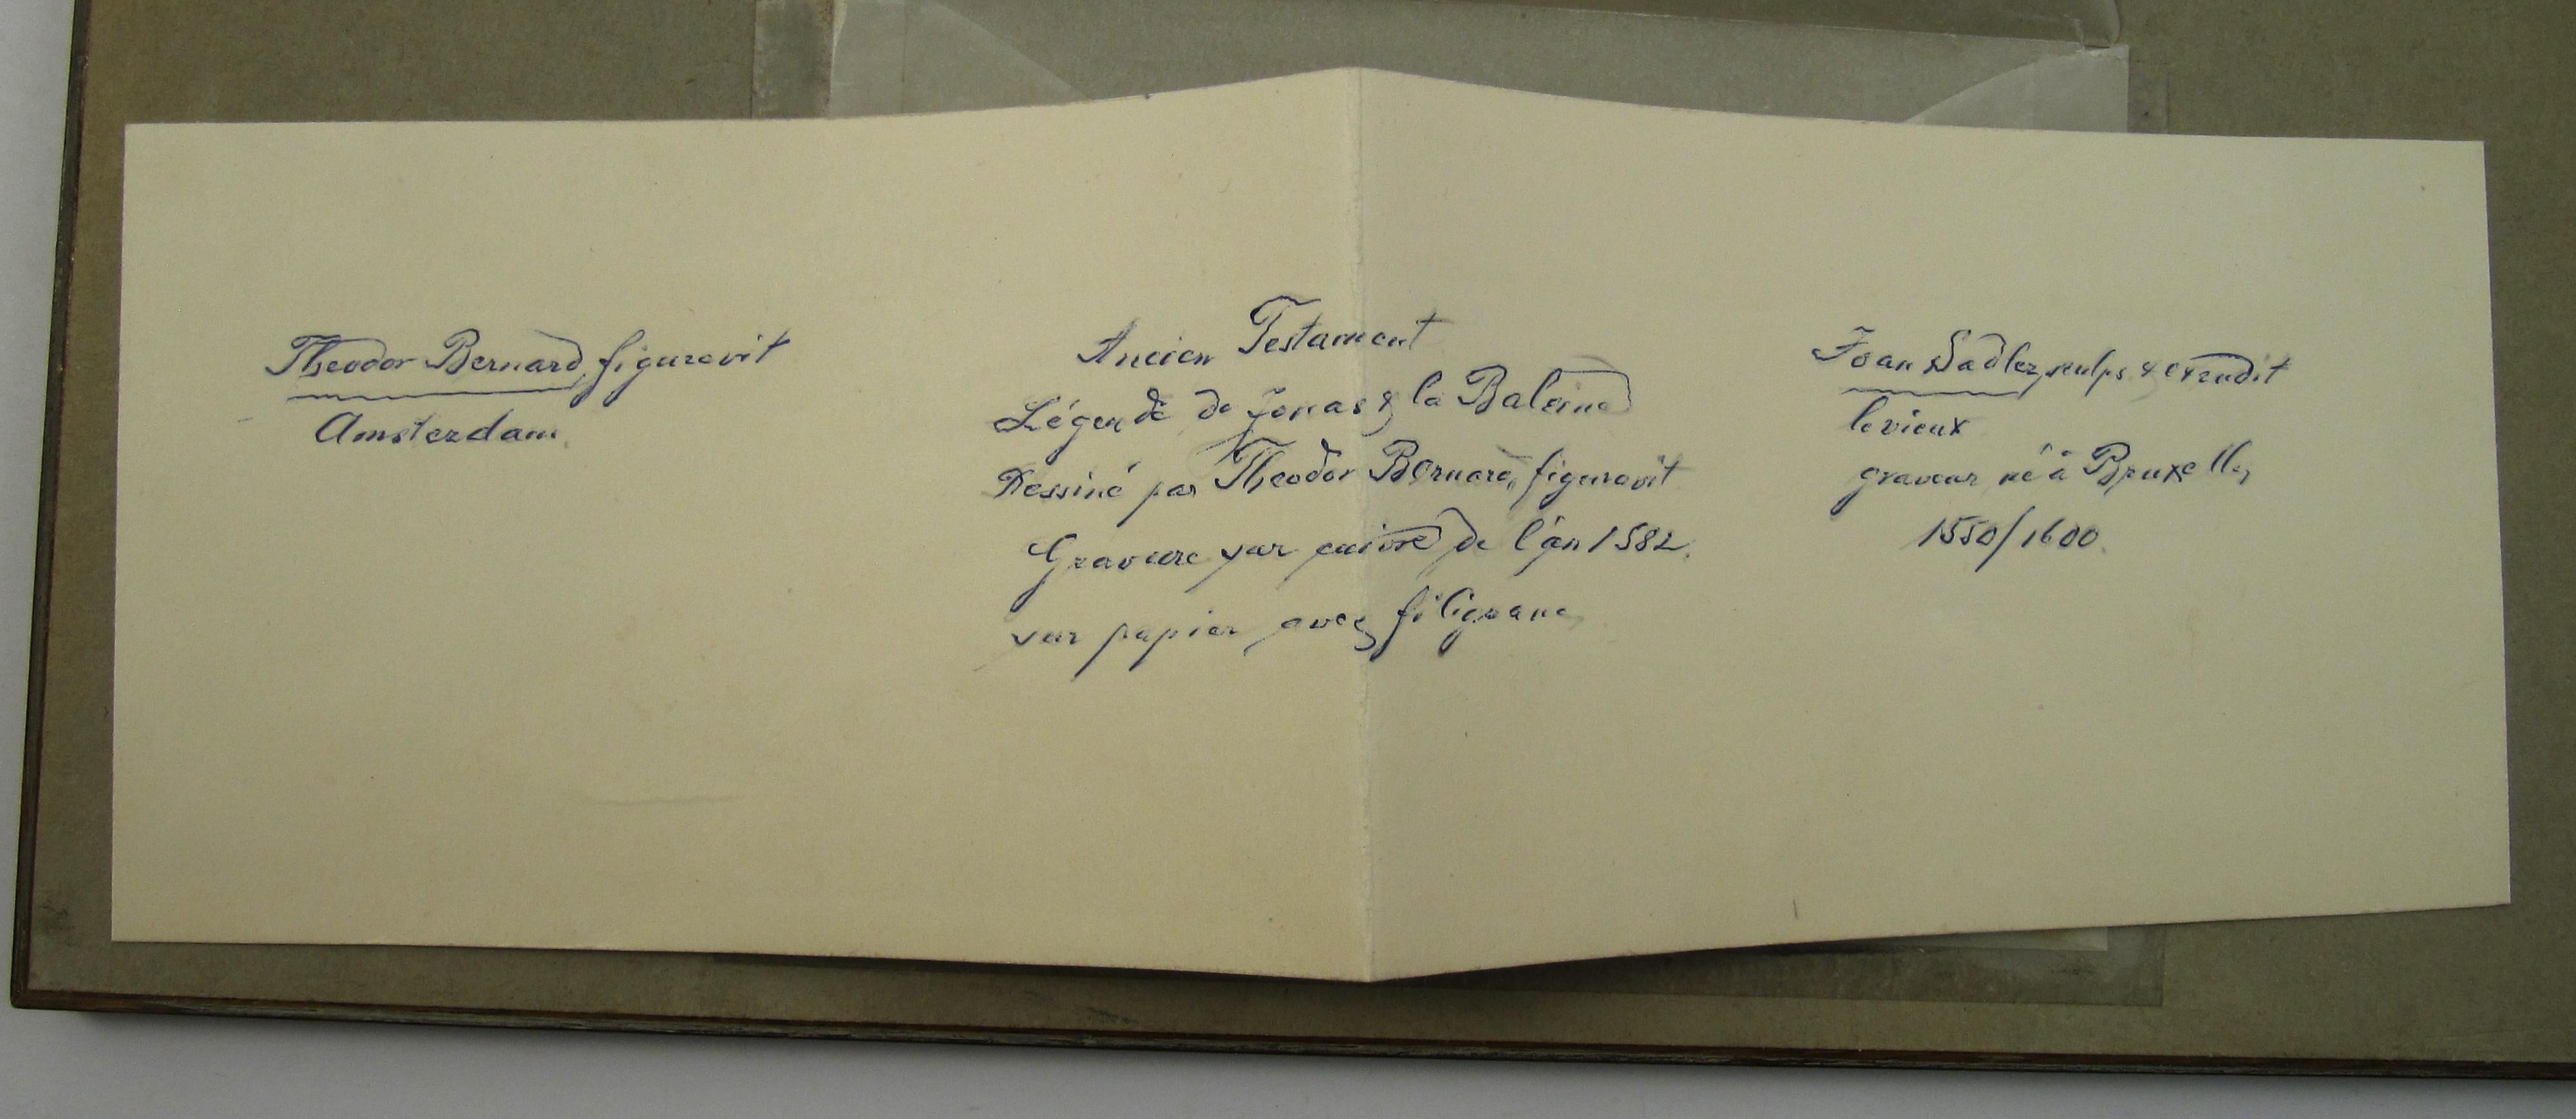 Theodor Bernard, figuravit
Amsterdam.
Ancien Testament
Légende de Jonas & la Baleine
Dessiné par Theodor Bernard, figuravit
Gravure sur cuivre de l'an 1582.
sur papier avec filigrane
Joan Sadler, sculps & excudit
le vieux
graveur né à Bruxelles
1550/1600.